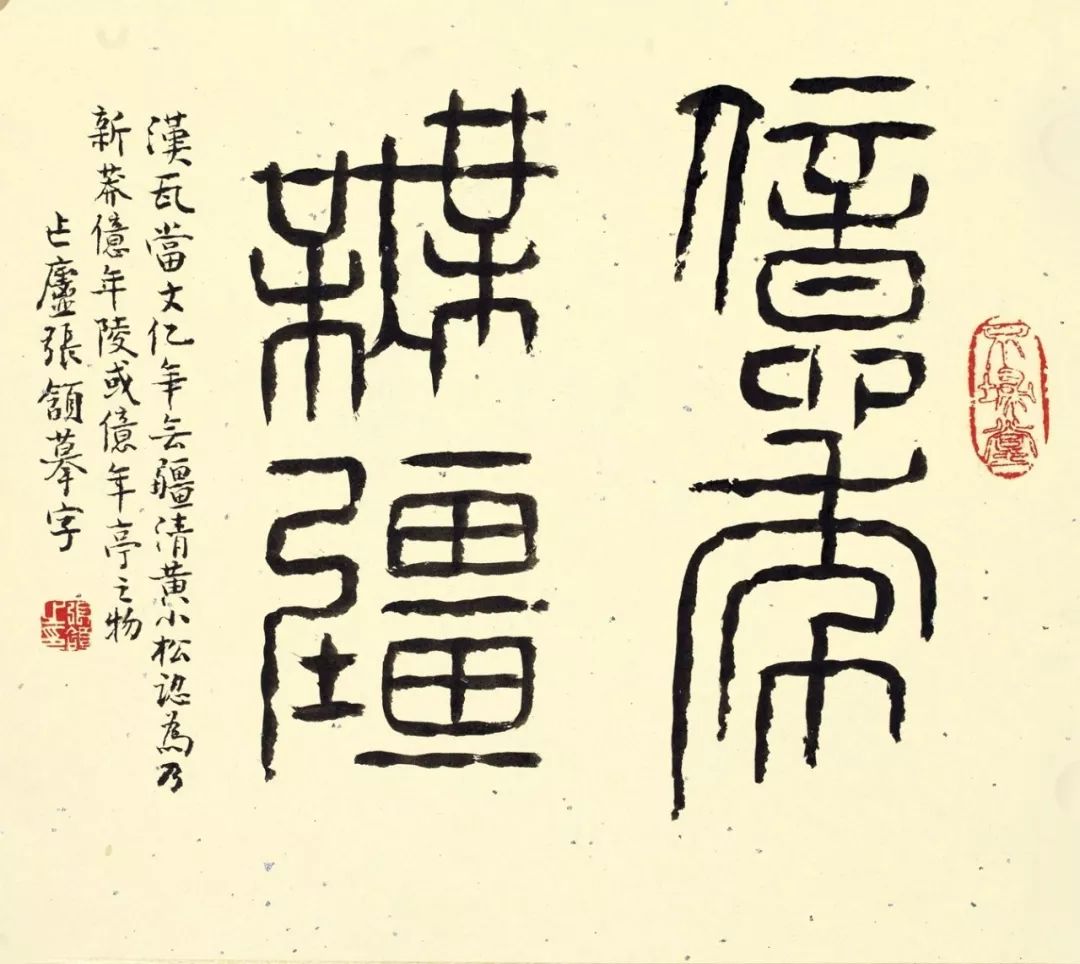 億年
無疆
漢瓦當文亿年无疆清黄小松認為乃
新莽億年陵或億年亭之物
乍廬張頷摹字